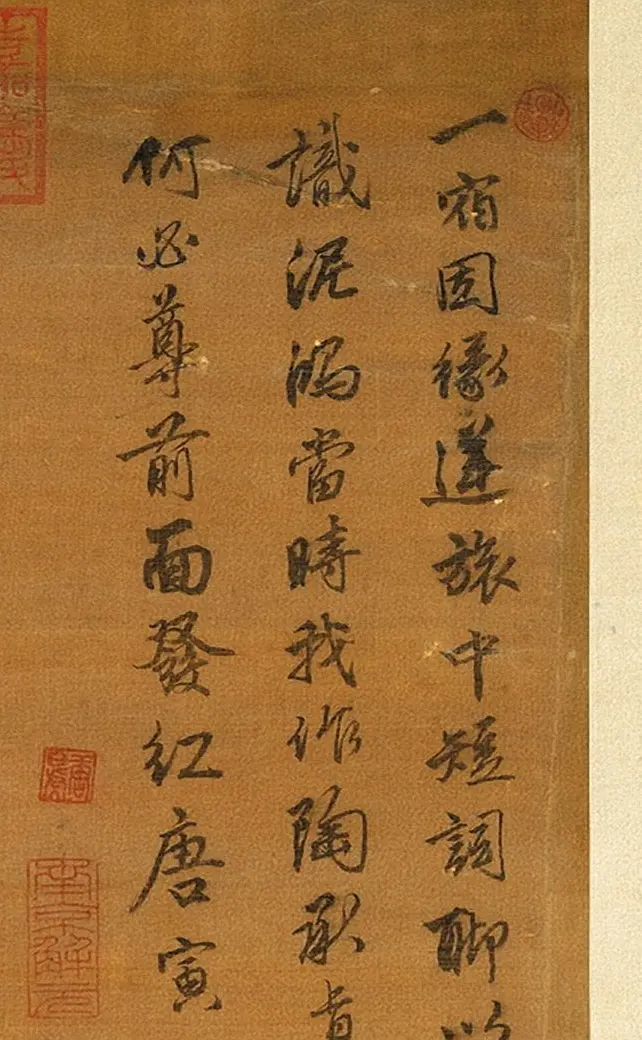 一宿因緣逆旅中短詞聊以
識泥鴻當時我作陶承旨
何必尊前面發紅唐寅
南京解元